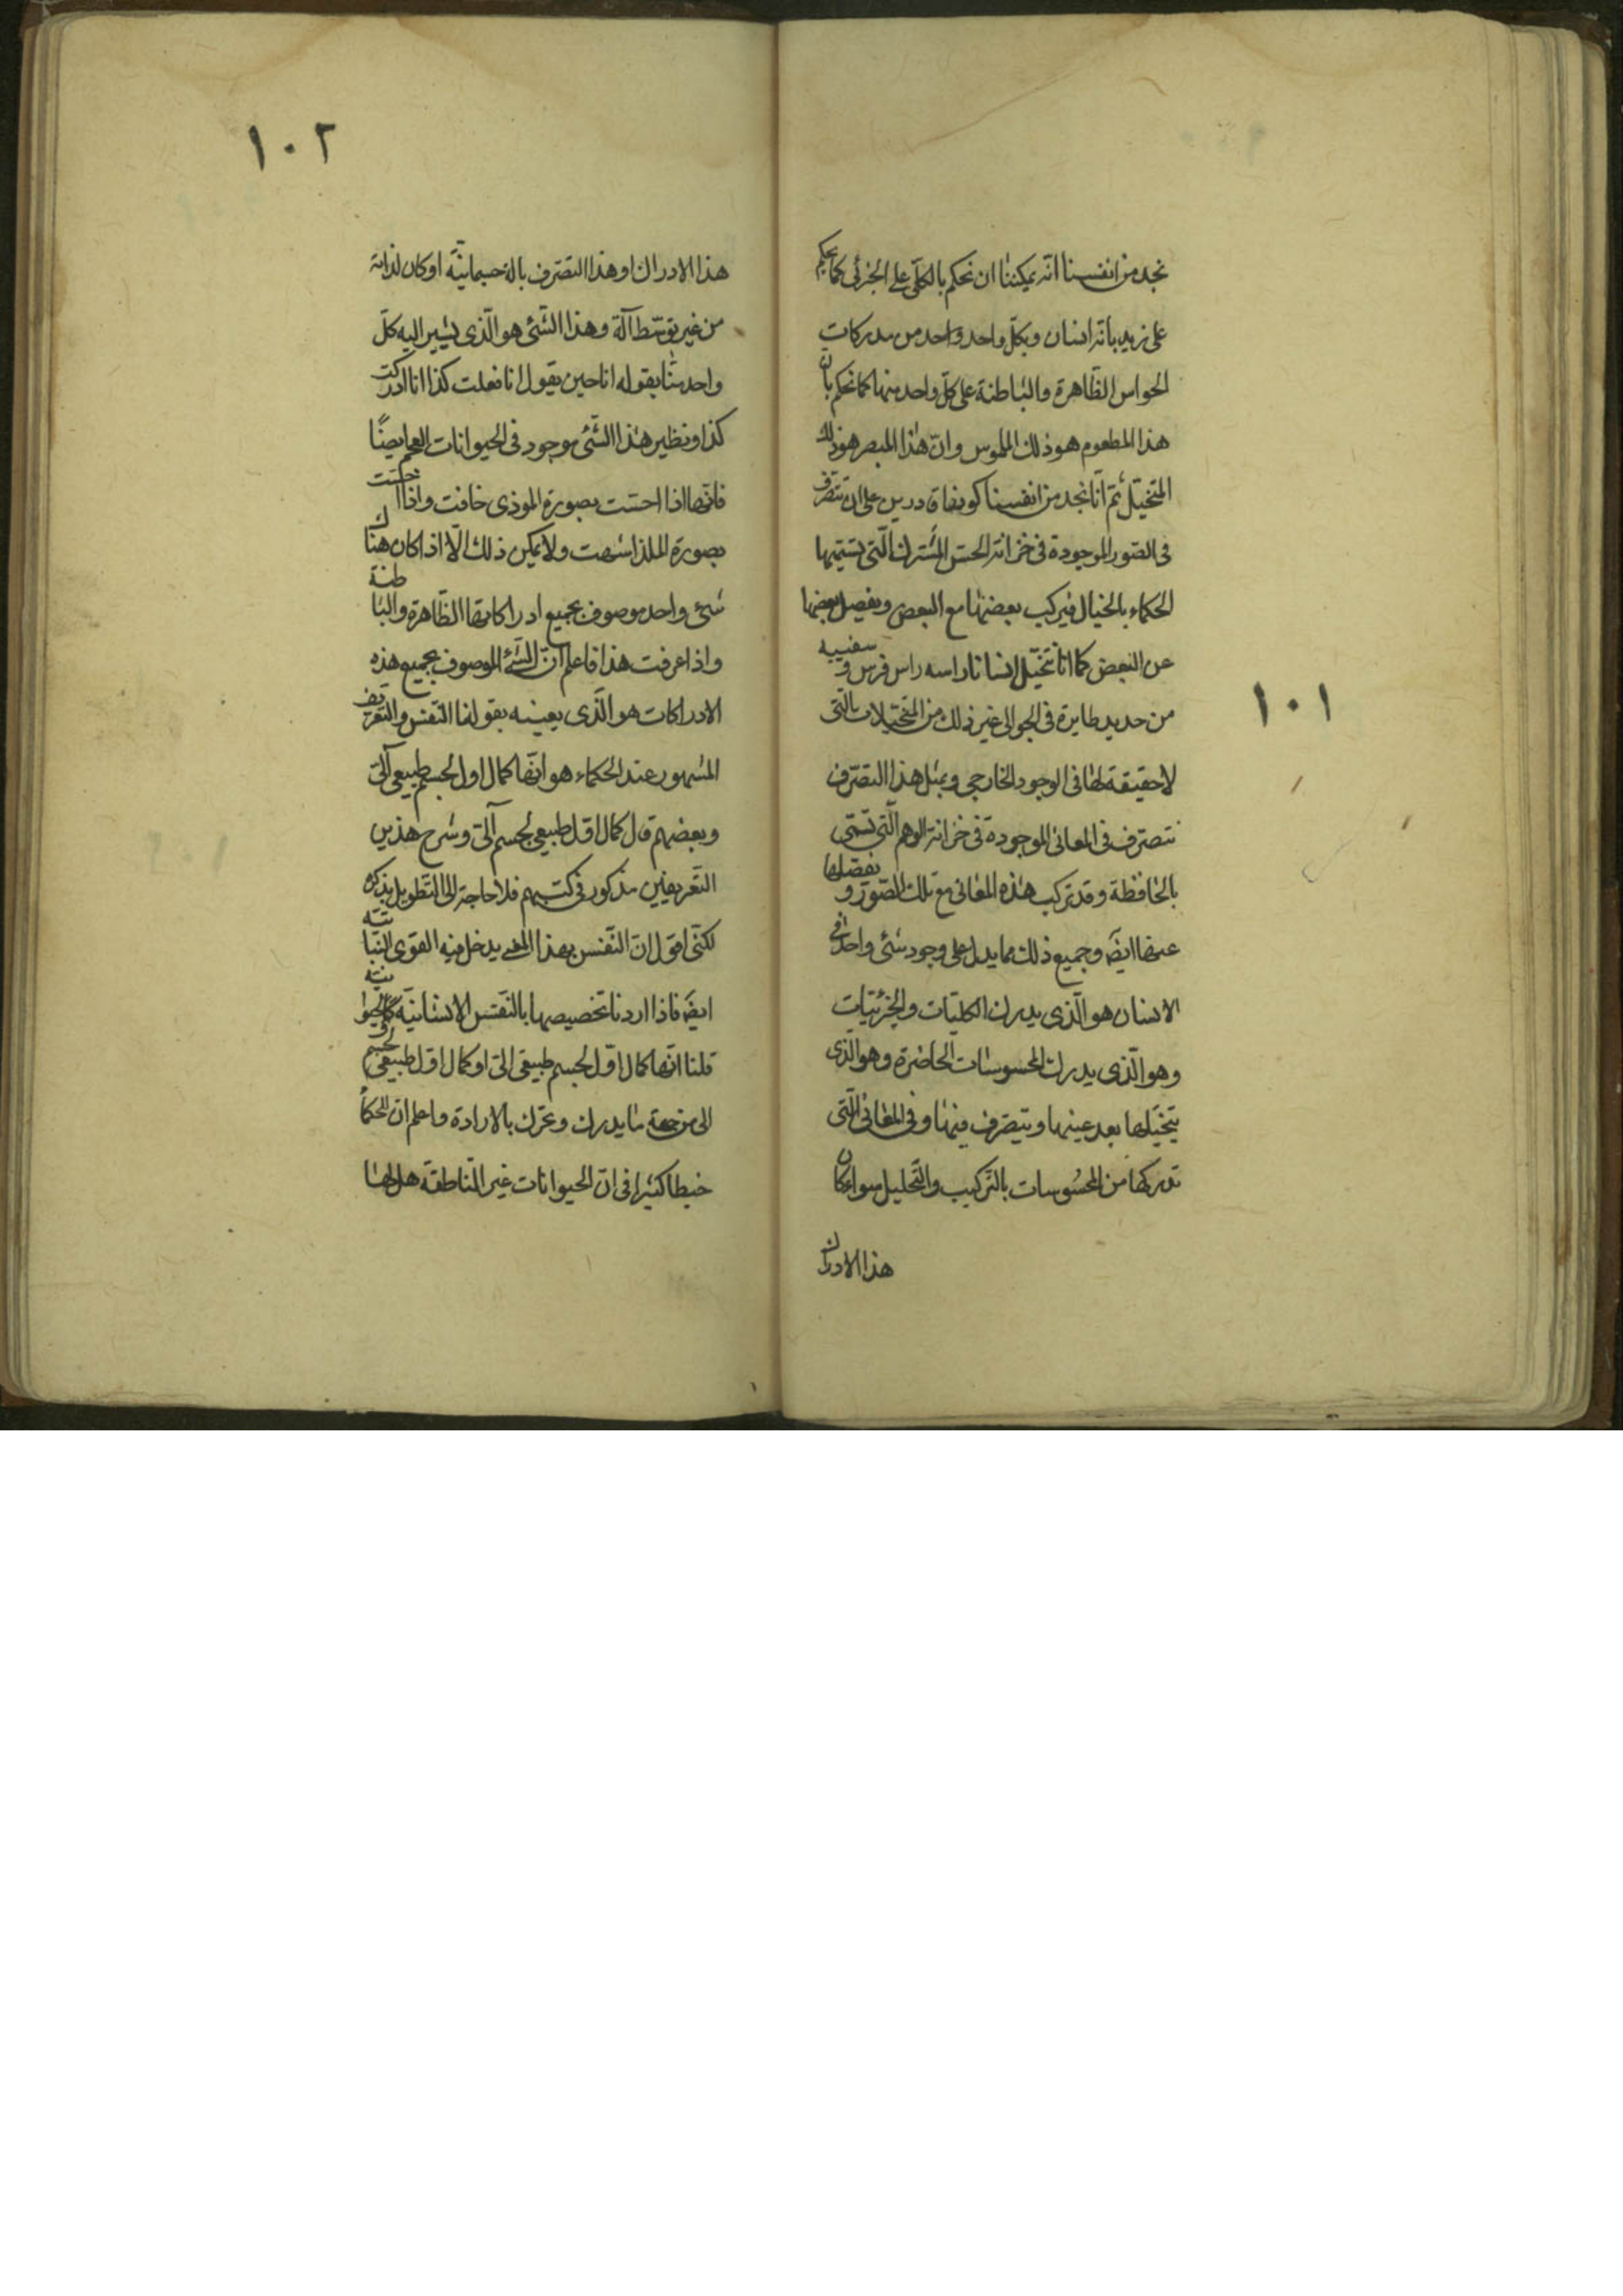 ١٠١
نجد من انفسنا انّه يمكننا ان نحكم بالكلّى على الجزئى كما نحكم
على زيد بانّه انسان وبكلّ واحد واحد من مدركات
الحواس الظّاهرة والباطنة على كلّ واحد منها كما نحكم بان
هذا المطعوم هو ذلك الملموس وانّ هذا المبصر هو ذلك
المتخيّل ثمّ انّا نجد من انفسنا كوننا قادرين على ان نتصرف
فى الصّور الموجودة فى خزانة الحسّ المشترك الّتى تسميها
الحكماء بالخيال فيركب بعضها مع البعض ويفصل بعضها
عن البعض كما انا نتخيّل انسانا راسه راس فرس و سفينه
من حديد طايرة فى الجو الى غير ذلك من المتخيّلات الّتى
لا حقيقة لها فى الوجود الخارجى وبمثل هذا التصرّف
نتصرّف فى المعانى الموجودة فى خزانة الوهم الّتى تسمّى
بالحافظة وقد تركب هذه المعانى مع تلك الصّور و نفصلها
عنها ايضَ وجميع ذلك مما يدل على وجود شئ واحد فى
الانسان هو الّذى يدرك الكليّات والجزئيّات
وهو الّذى يدرك المحسوسات الحاضرة وهو الّذى
يتخيّلها بعد غيبتها ويتصرّف فيها وفى المعانى الّتى
تدركها من المحسُوسات بالتّركيب والتّحليل سواء كان
هذا الادراك
١٠٢
هذا الادراك او هذا التصّرف بالة جسمانيّة او كان لذاته
من غير توسّط آلة وهذا الشّئ هو الّذى يشير اليه كلّ
واحد منّا بقوله انا حين يقول انا فعلت كذا انا ادركت
كذا ونظير هذا الشّئ موجود فى الحيوانات العجم ايضًا
فانّها اذا احسّت بصورة الموذى خافت واذا احسّت
بصورة الملذ اشتهت ولا يمكن ذلك الّا اذا كان هناك
شئ واحد موصوف بجميع ادراكاتها الظّاهرة والباطنة
واذا عرفت هذا فاعلم انّ الشّئ الموصوف بجميع هذه
الادراكات هو الّذى يعنيه بقولنا النّفس والتّعريف
المشهور عند الحكماء هو انّها كمال اول لجسم طبيعى آلىّ
وبعضهم قال كمال اوّل طبيعى لجسم آلىّ وشرح هذين
التّعريفين مذكور فى كتبهم فلا حاجة الى التّطويل بذكره
لكنّى اقول انّ النّفس بهذا المعنى يدخل فيه القوى النّباتيّه
ايضَ فاذا اردنا تخصيصها بالنّفس الانسانيّة والحيوانيّه
قلنا انّها كمال اوّل لجسم طبيعى الىّ او كمال اوّل طبيعى لجسم
الى من جهة ما يدرك وتحرّك بالارادة واعلم انّ للحكمأ
خبطا كثيرا فى انّ الحيوانات غير النّاطقة هل لها